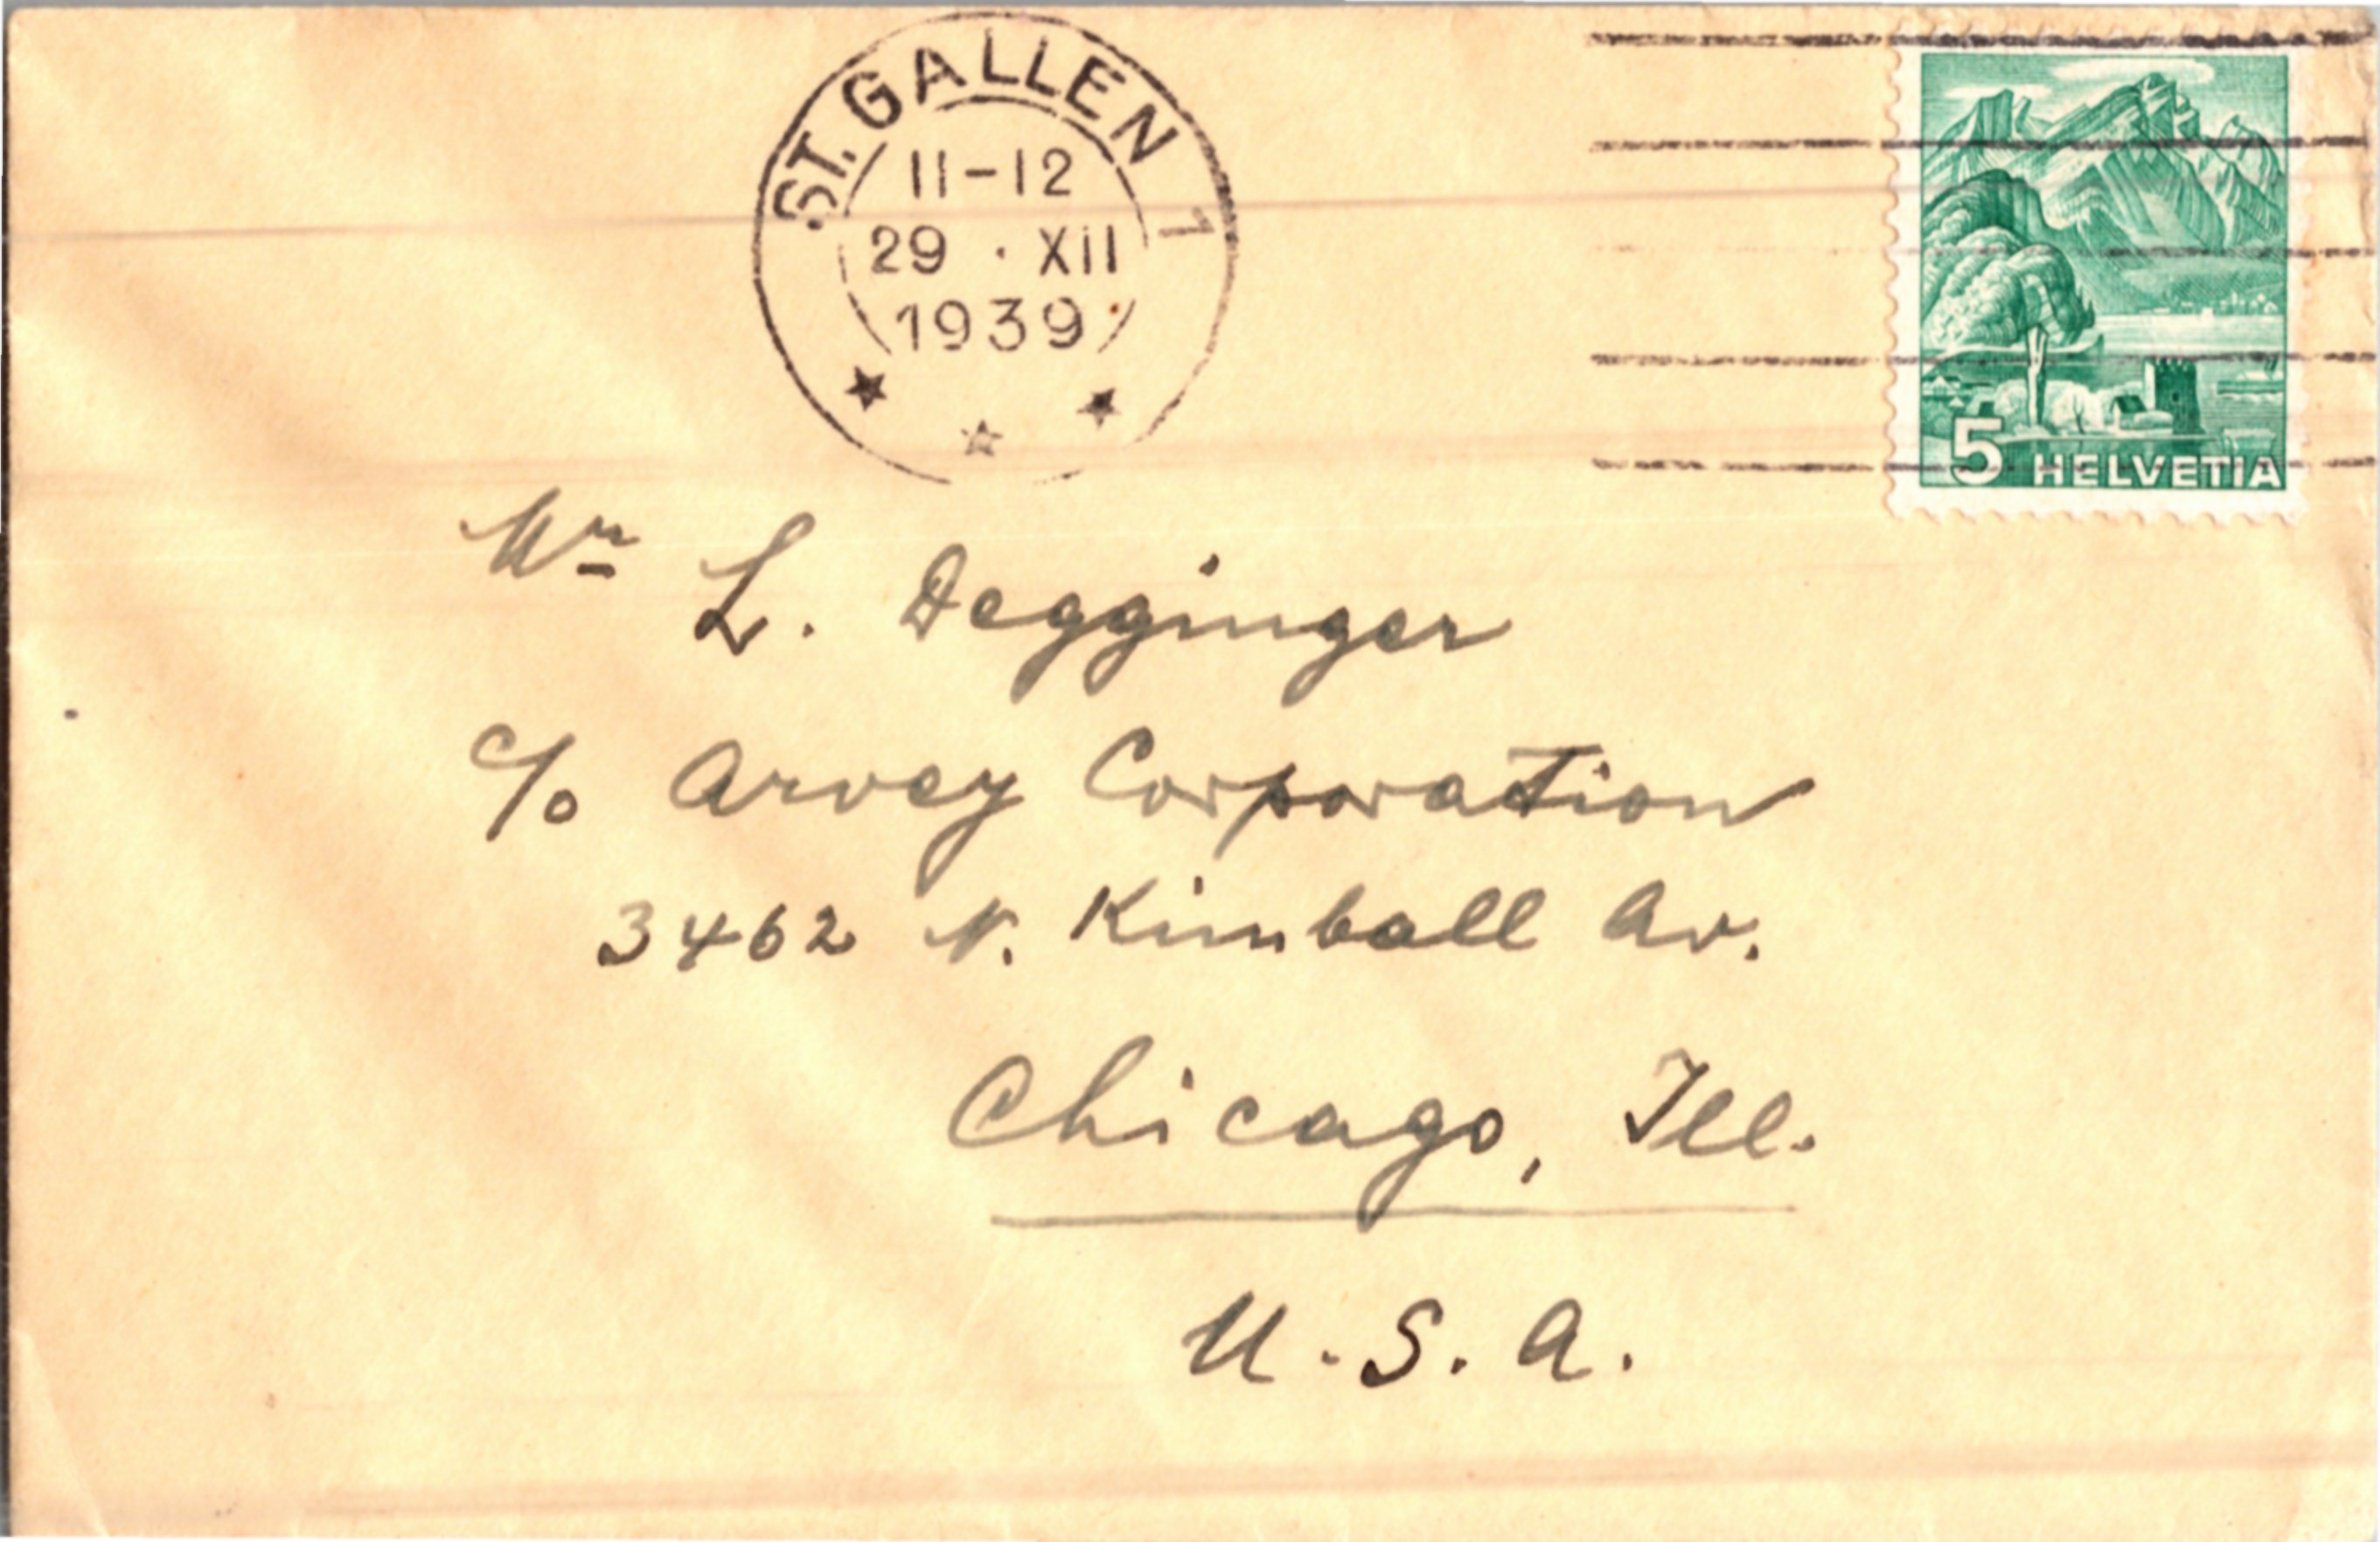 ST. GALLEN 1
11-12
29 · XII
1939
5 HELVETIA
Mr L. Degginger
c/o Arvey Corporation
3462 N. Kimball Av.
Chicago, Ill.
U.S.A.